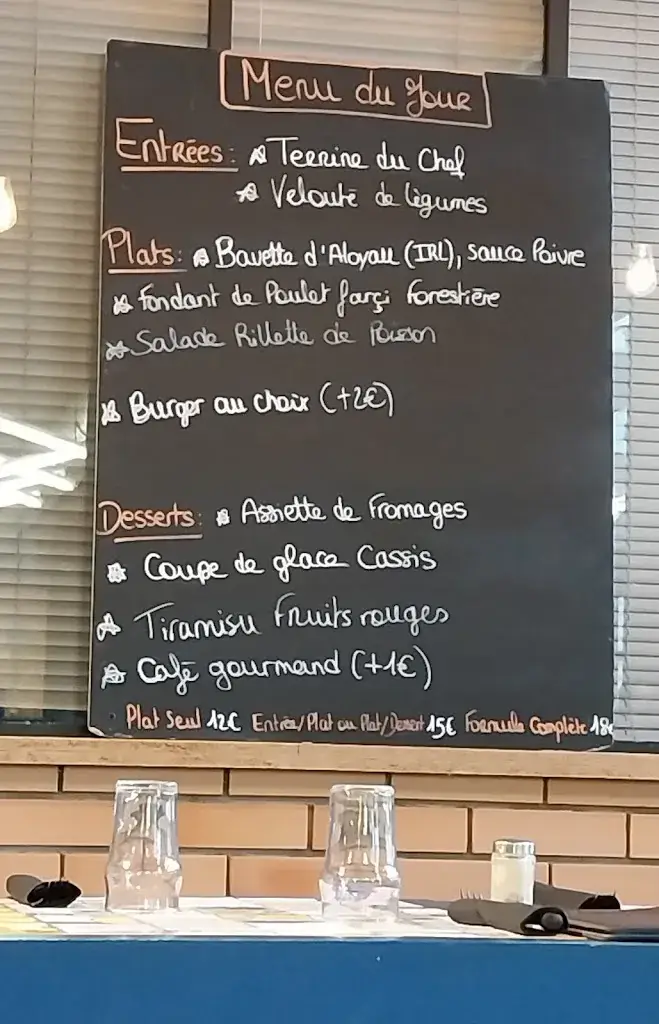 Menu du Jour
Entrées: Terrine du Chef
Velouté de légumes
Plats: Bavette d'Aloyau (IRL), sauce Poivre
Fondant de Poulet farçi forestière
Salade Rillette de Poisson
Burger au choix (+2€)
Desserts: Assiette de Fromages
Coupe de glace Cassis
Tiramisu Fruits rouges
Café gourmand (+1€)
Plat Seul 12€ Entrée/Plat ou Plat/Dessert 15€ Formule Complète 18€